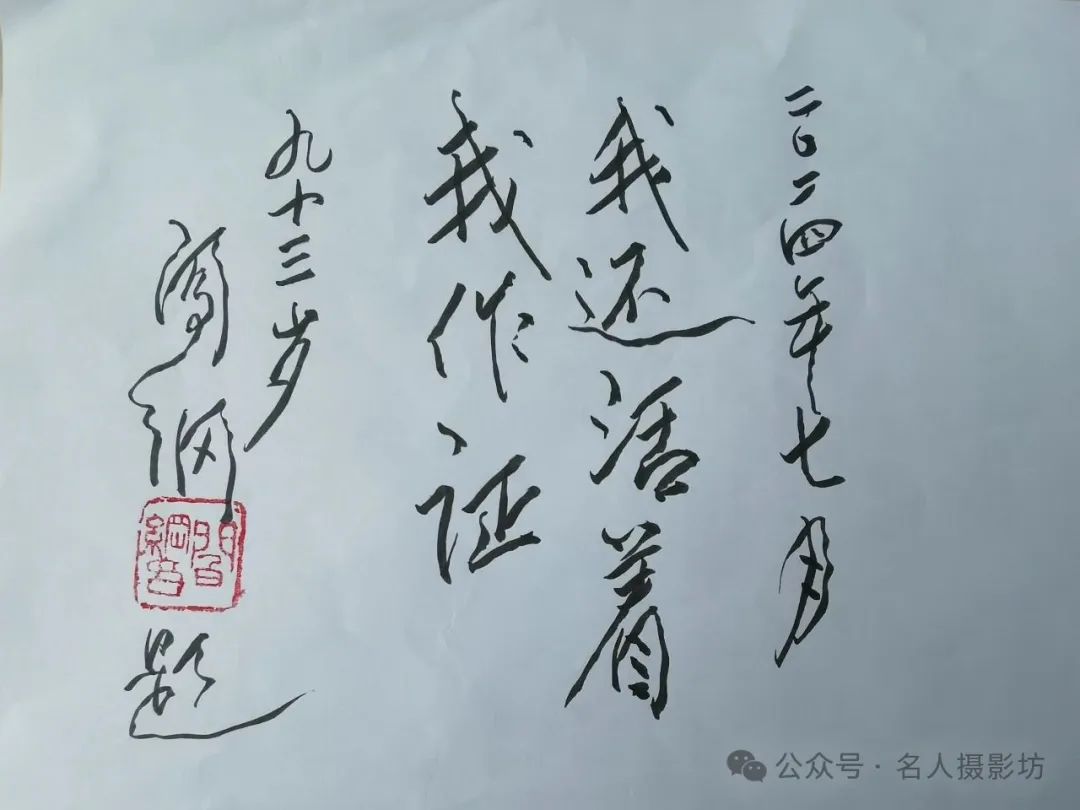 二〇二四年七月
我还活着
我作证
九十三岁
阎纲
题
公众号·名人摄影坊